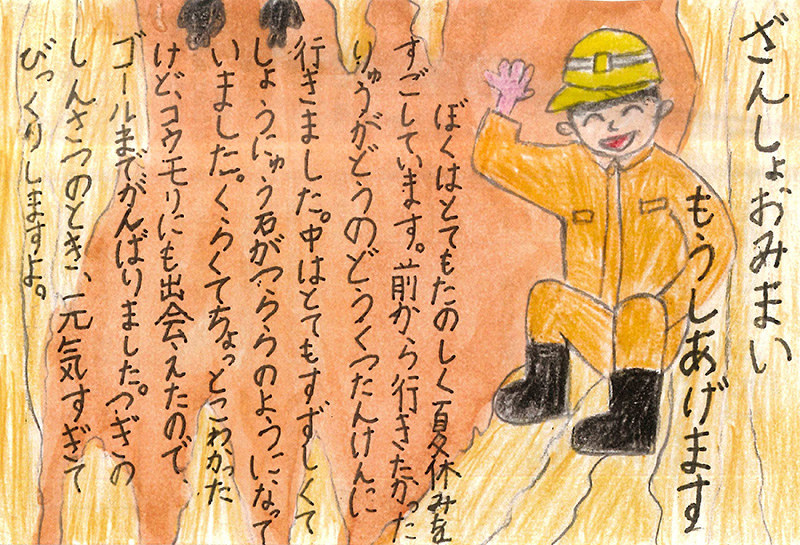 ざんしょおみまい
もうしあげます
ぼくはとてもたのしく夏休みを
すごしています。前から行きたかった
りゅうがどうのどうくつたんけんに
行きました。中はとてもすずしくて
しょうにゅう石がつららのようになって
いました。くらくてちょっとこわかった
けど、コウモリにも出会えたので、
ゴールまでがんばりました。つぎの
しんさつのとき、元気すぎて
びっくりしますよ。